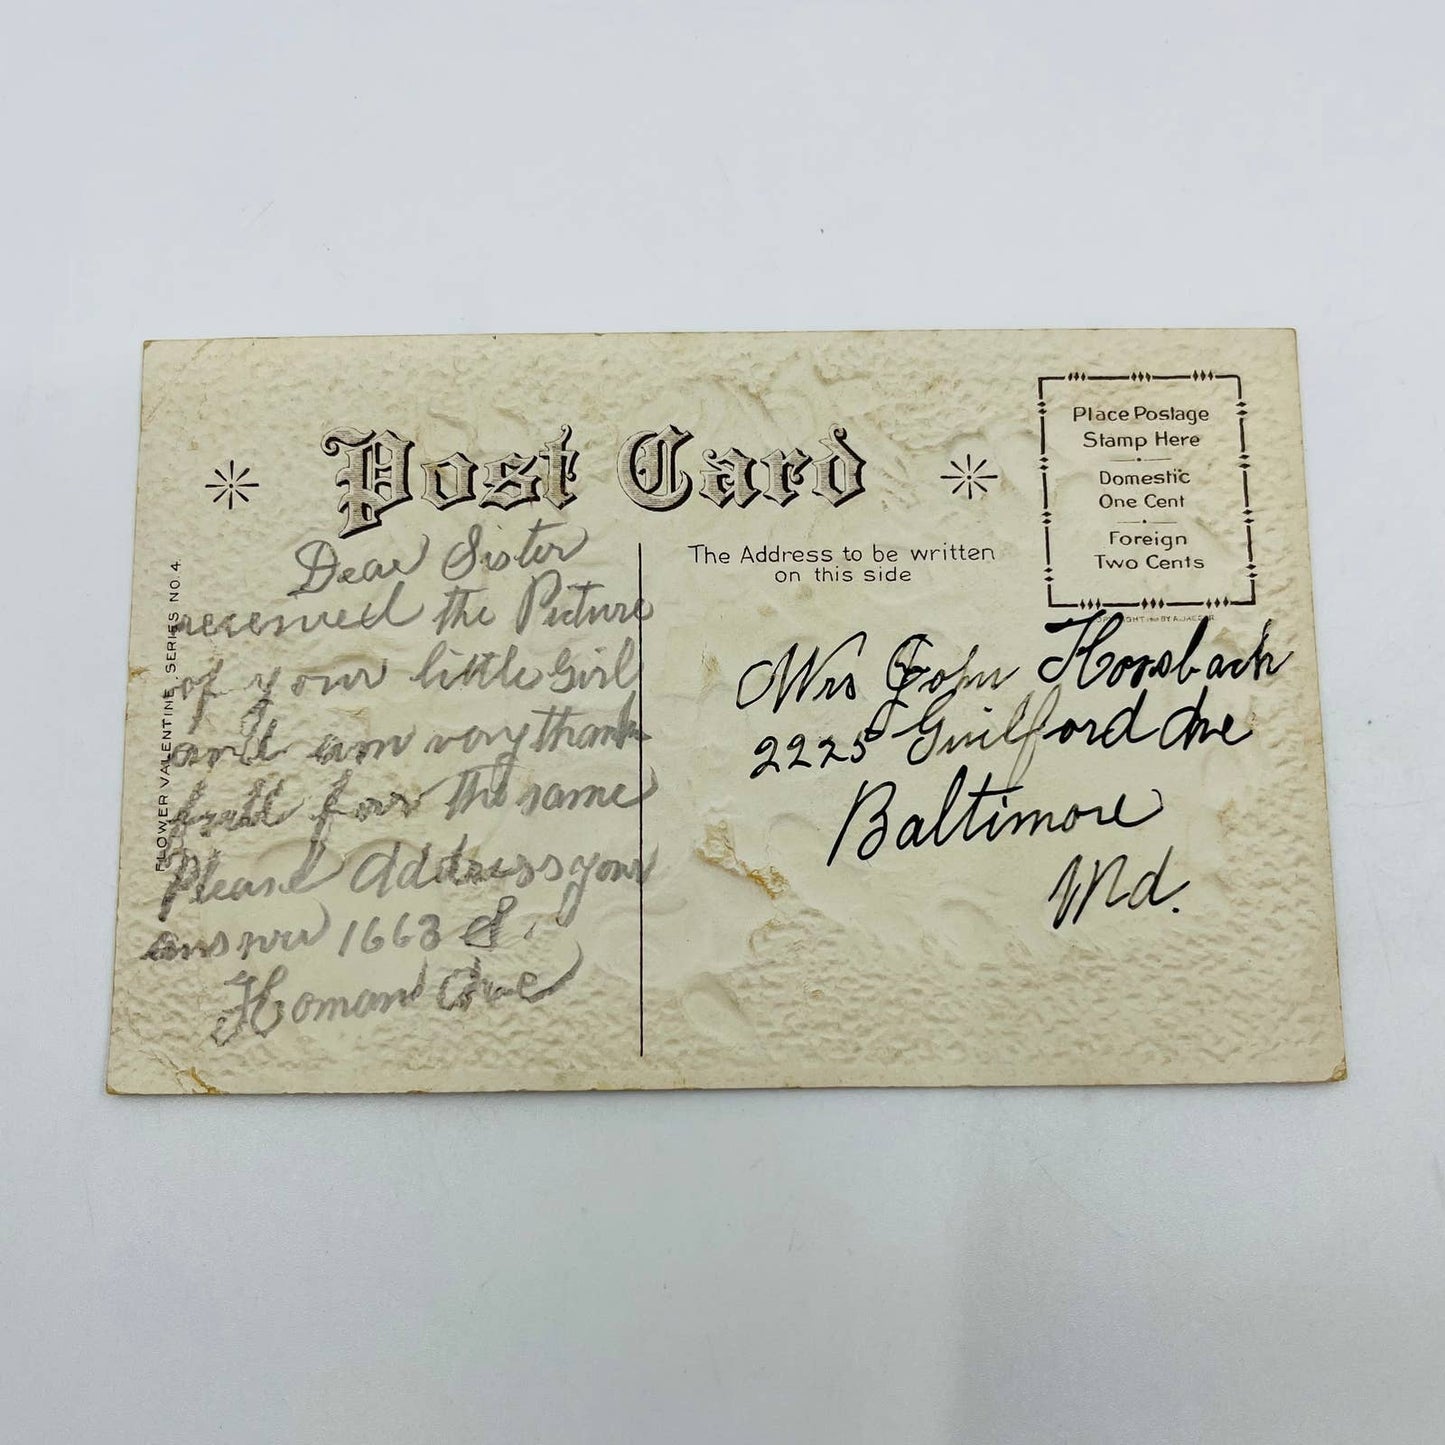 Post Card
Place Postage
Stamp Here
Domestic
One Cent
Foreign
Two Cents
The Address to be written
on this side
FLOWER VALENTINE SERIES NO. 4.
Dear Sister
received the Picture
of your little Girl
and am very thank
full for the same
Please Address your
answer 1663 S.
Homan Ave
Mrs John Horsbach
2225 Guilford Ave
Baltimore
Md.